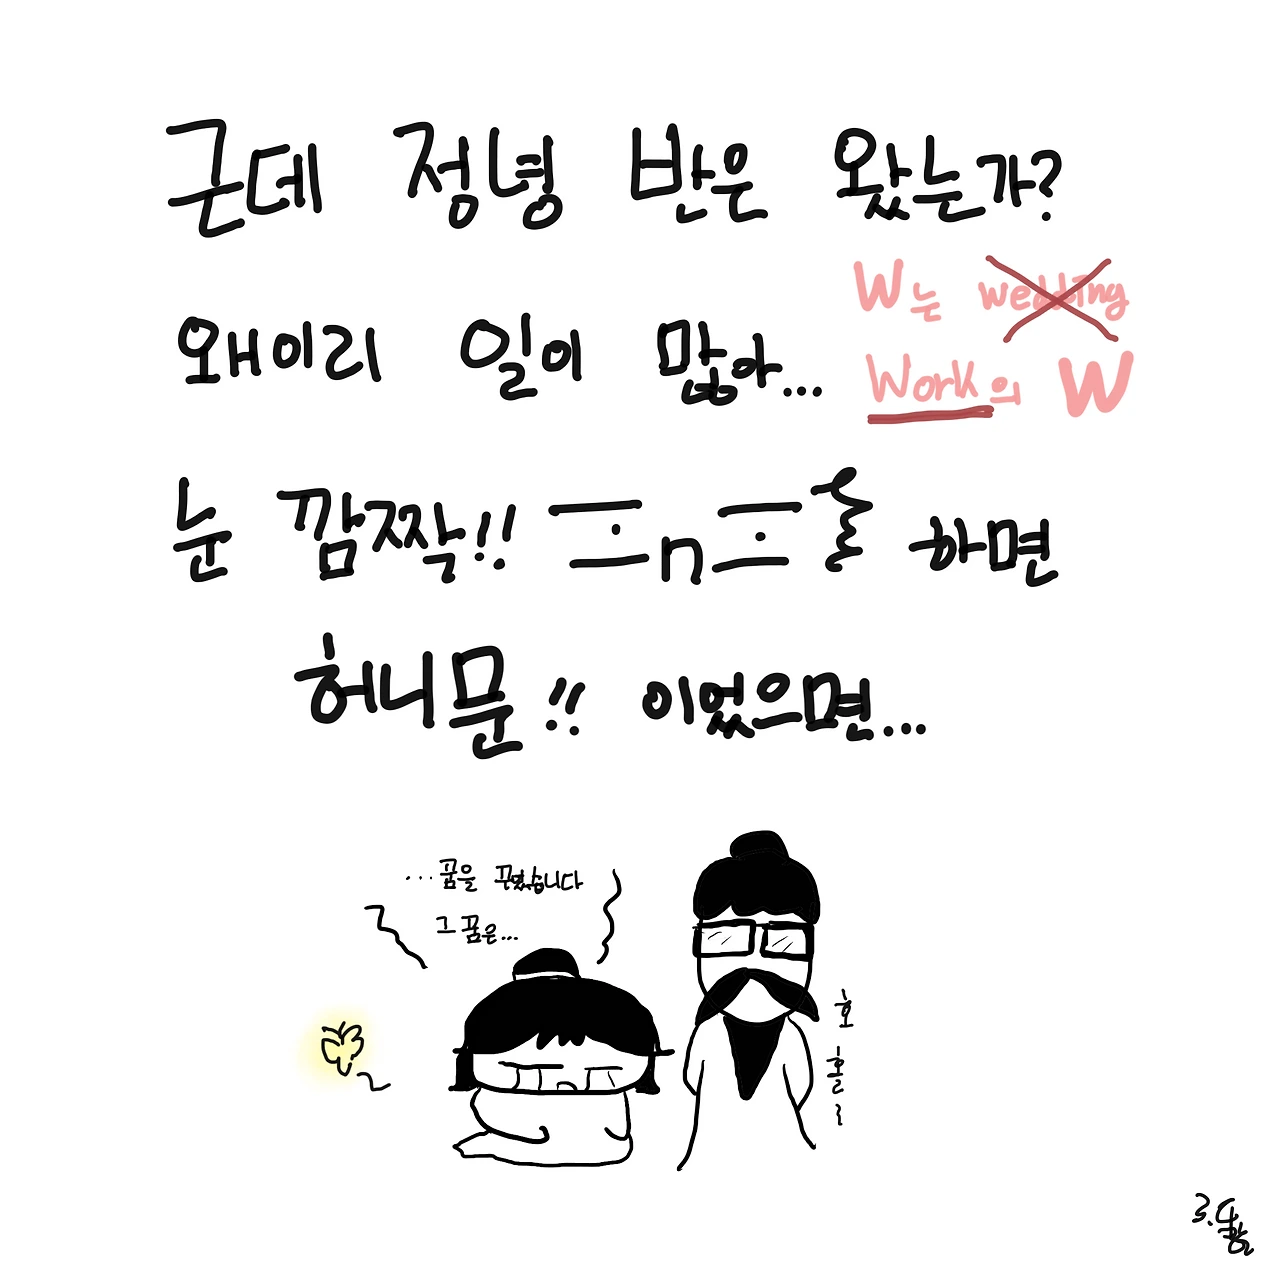 근데 정녕 반은 왔는가?
W는 wedding
왜이리 일이 많아...
Work의 W
눈 깜짝!! 하면
허니문!! 이었으면...
...꿈을 꾸었습니다
그 꿈은...
호
홀
~